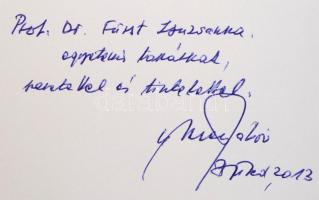 Prof. Dr. Fürst Zsuzsanna
egyetemi tanárnak,
szeretettel és tisztelettel
2013